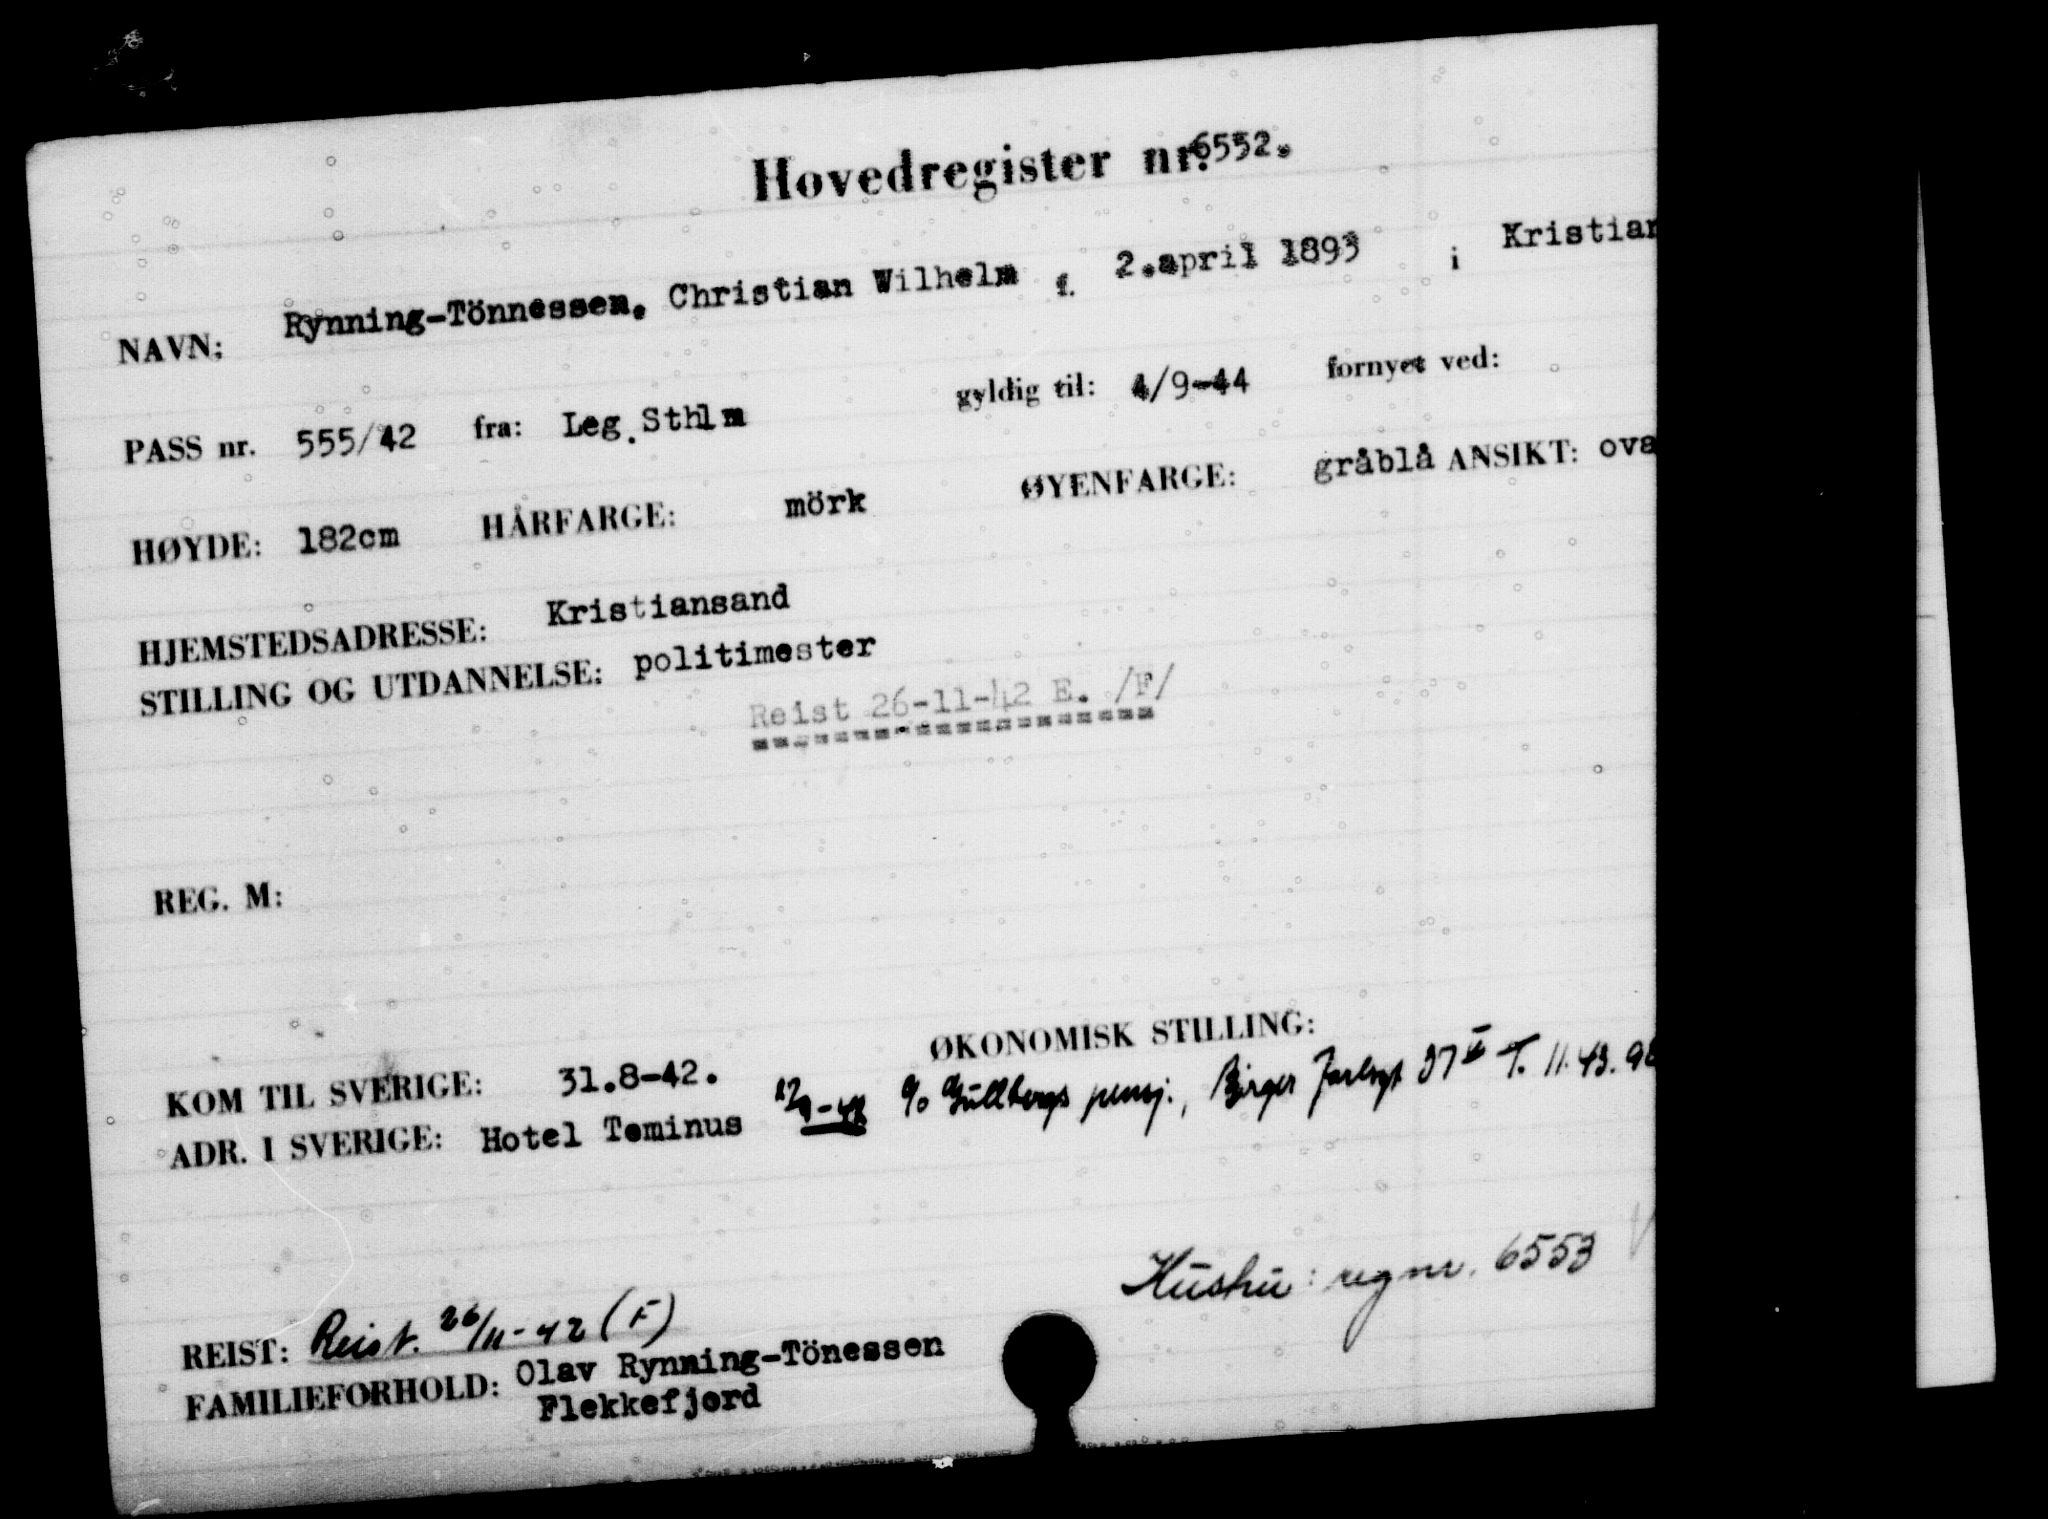 Hovedregister nr. 6552.
NAVN: Rynning-Tönnessen, Christian Wilhelm f. 2.april 1893 i Kristian
PASS nr. 555/42 fra: Leg.Sthlm gyldig til: 4/9-44 fornyet ved:
HØYDE: 182cm HÅRFARGE: mörk ØYENFARGE: gråblå ANSIKT: ova
HJEMSTEDSADRESSE: Kristiansand
STILLING OG UTDANNELSE: politimester
Reist 26-11-42 E. /F/
REG. M:
ØKONOMISK STILLING:
KOM TIL SVERIGE: 31.8-42.
ADR. I SVERIGE: Hotel Teminus c/o Gullbergs pensj., Birger Jarlsgt 37 II T. 11.43.96
Hustru: regnr. 6553
REIST: Reist. 26/11-42 (F)
FAMILIEFORHOLD: Olav Rynning-Tönessen
Flekkefjord